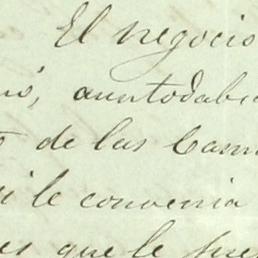 El negocio
aun todabi
de las Cam
le convenia
que le